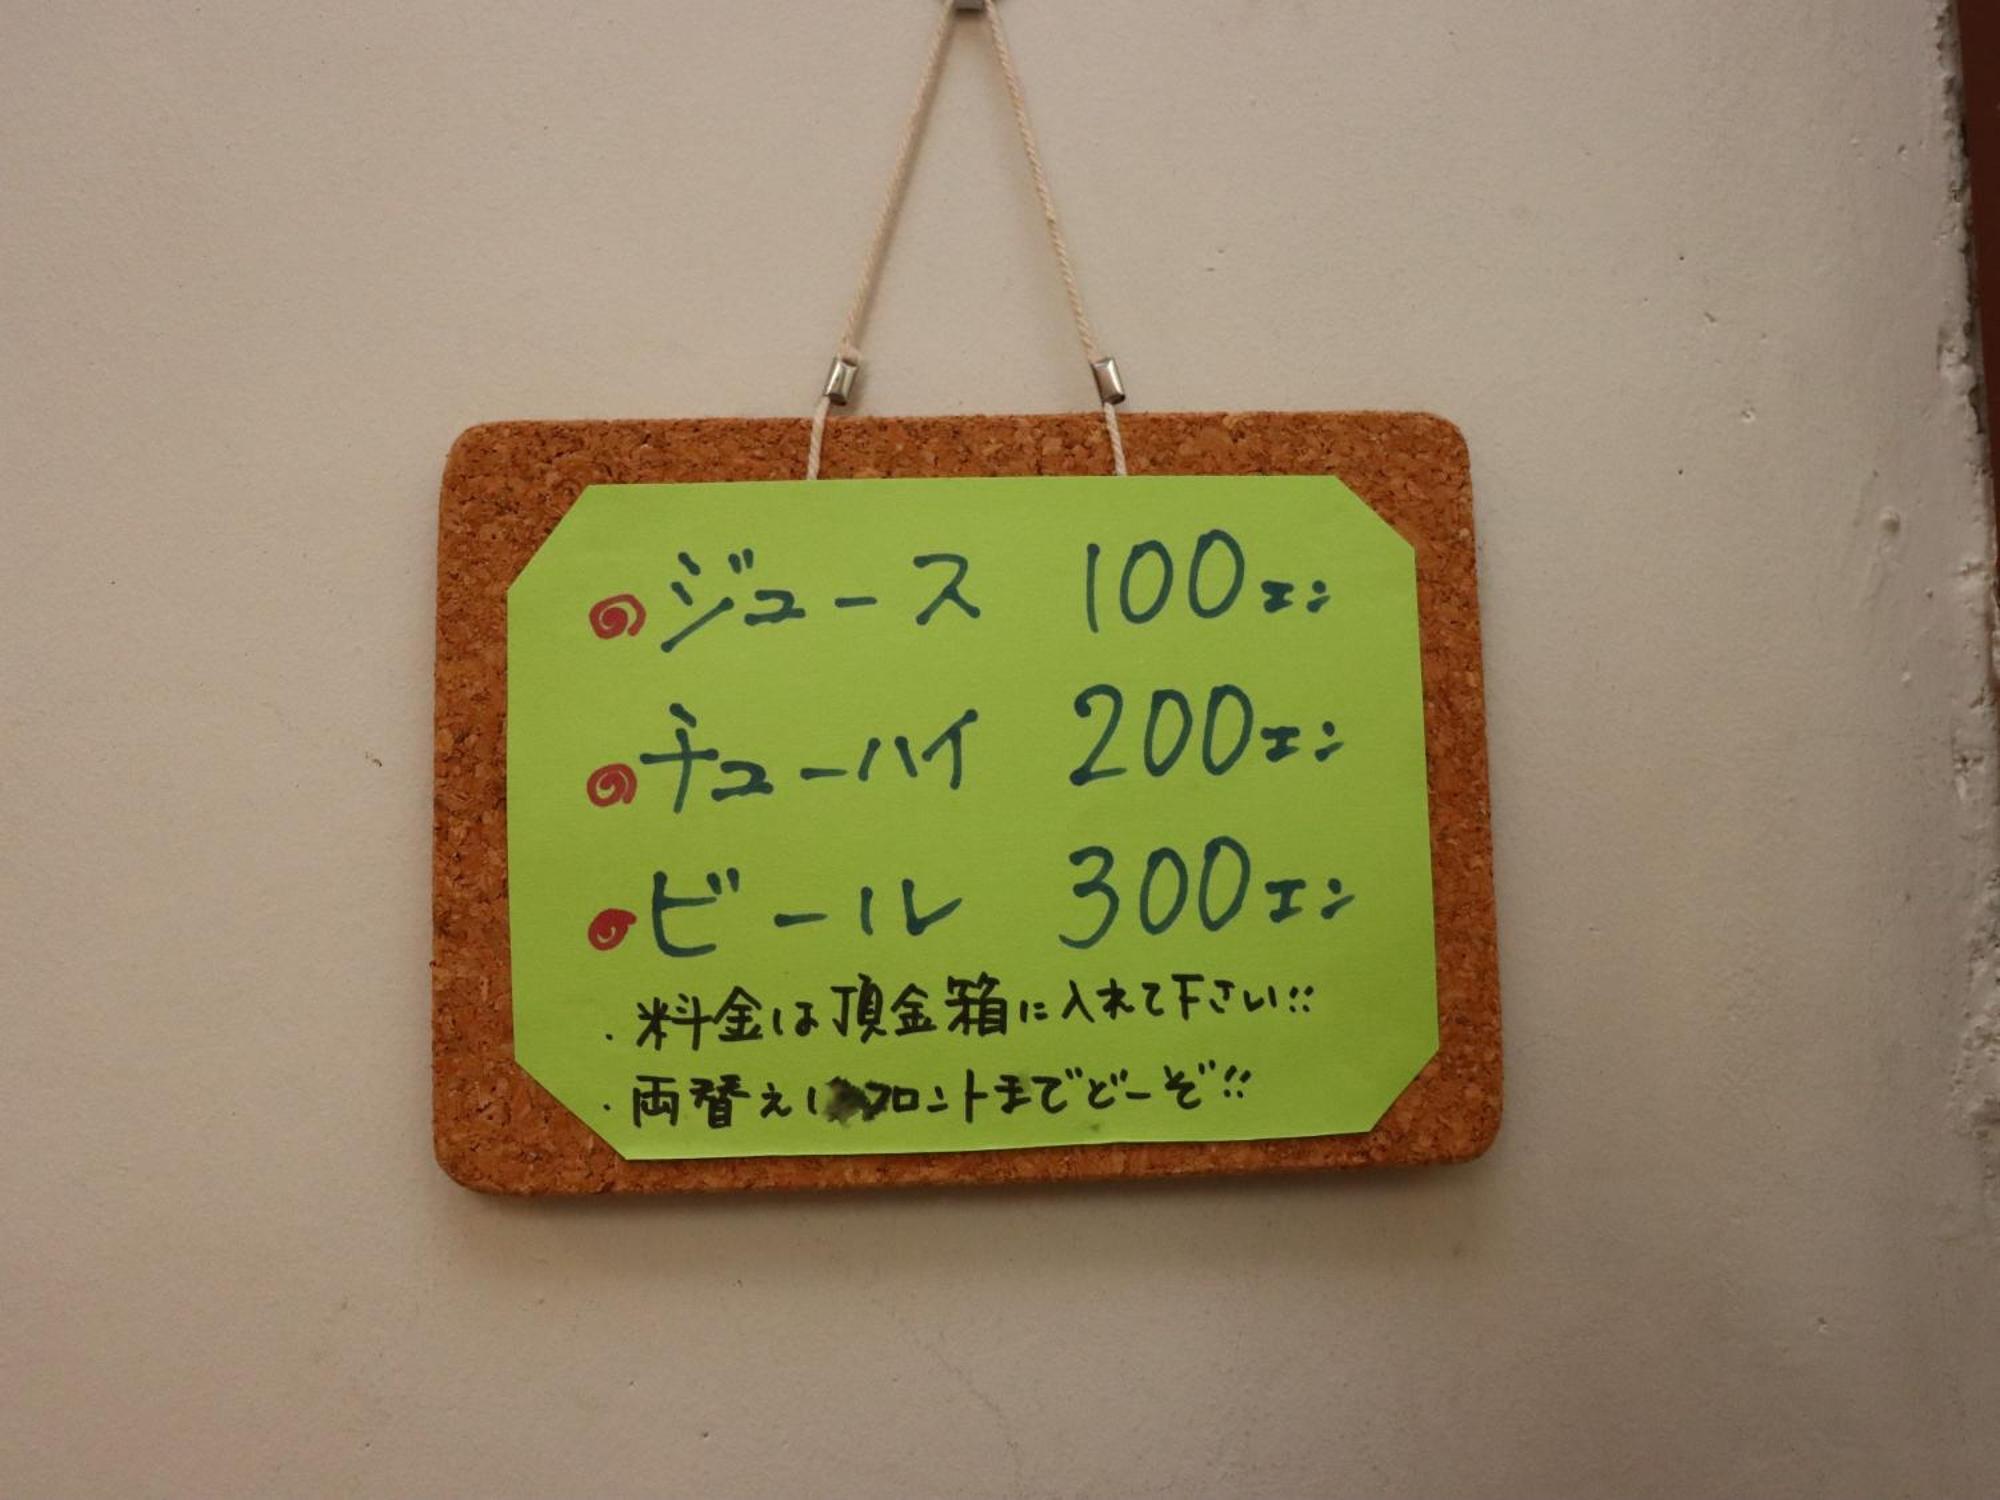 ジュース 100エン
チューハイ 200エン
ビール 300エン
・料金は頂金箱に入れて下さい!!
・両替え フロントまでどーぞ!!